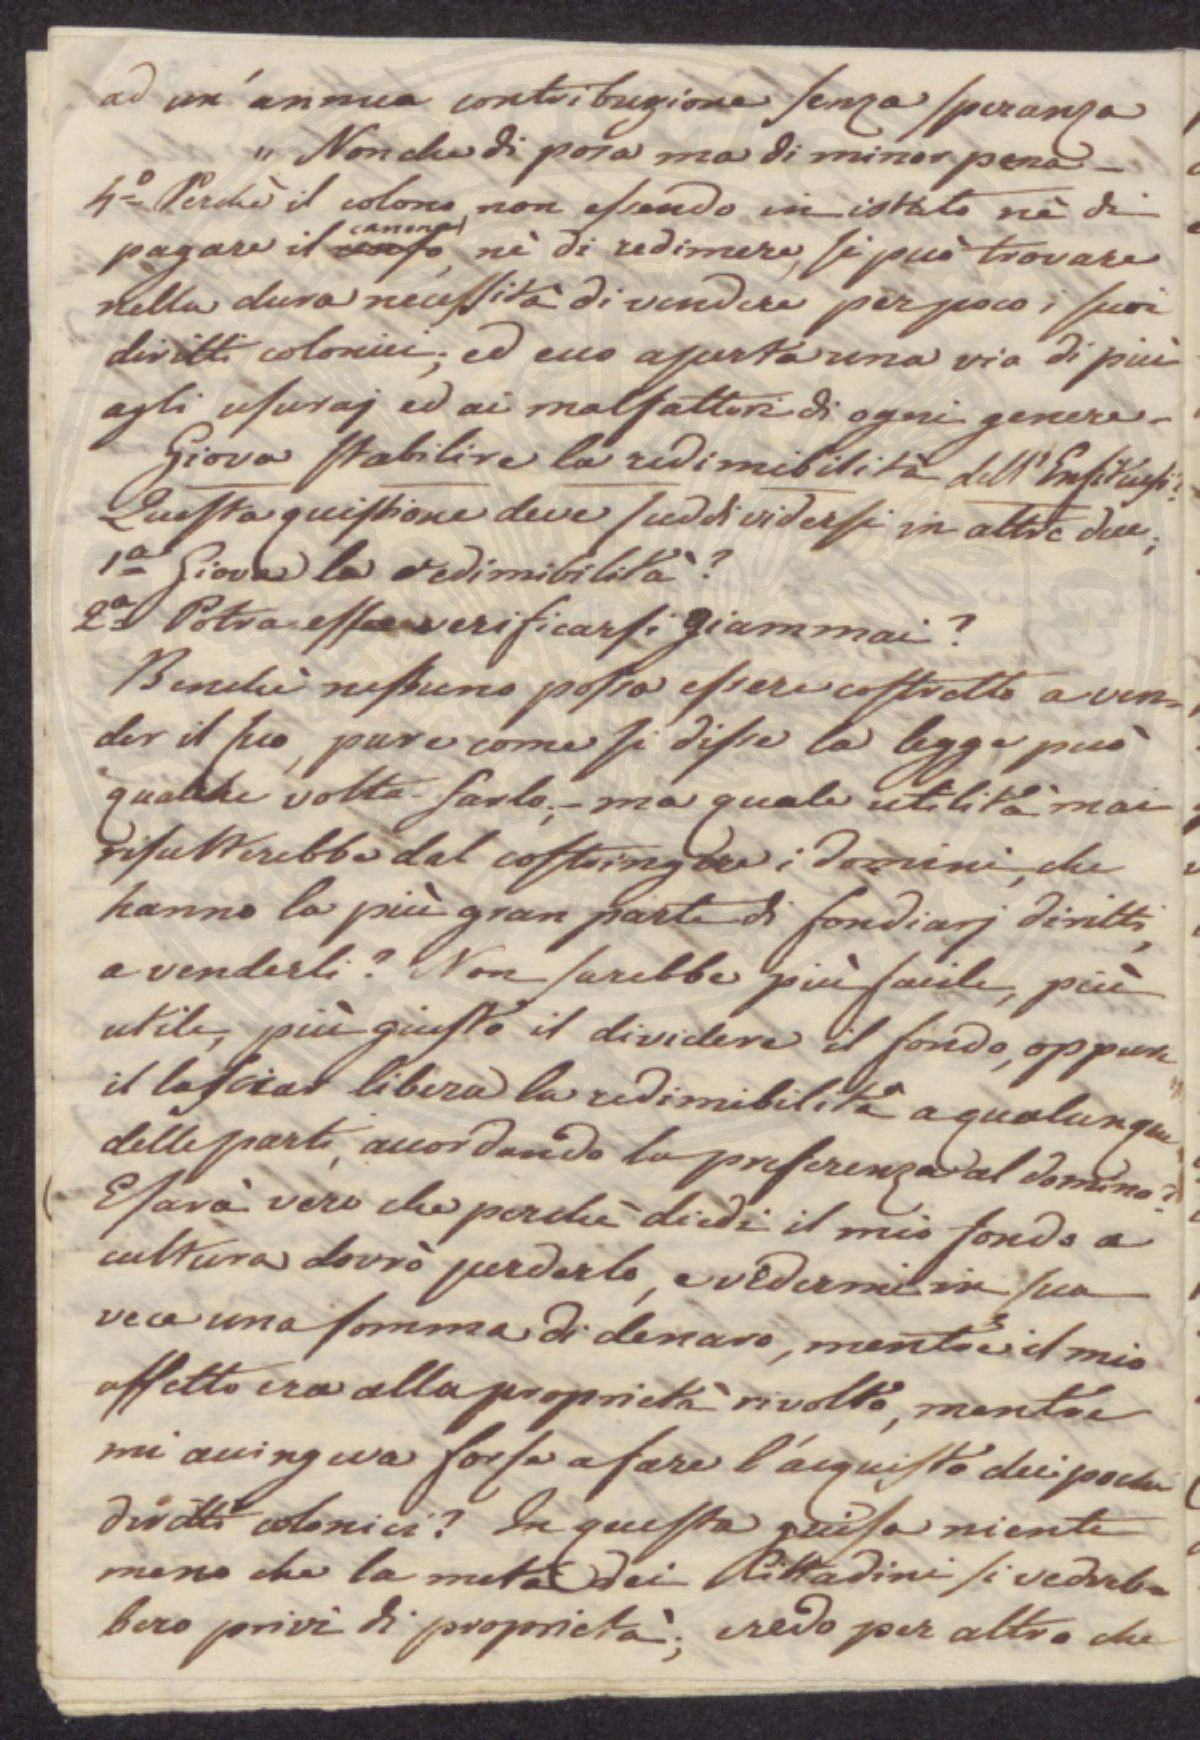 ad un'annua contribuzione senza speranza
" Nonche di posa ma di minor pena –
4.º Perchè il colono non essendo in istato nè di
pagare il censo canone, nè di redimere, si può trovare
nella dura necessità di vendere per poco i suoi
diritti colonici; ed ecco aperta una via di più
agli usuraj ed ai malfattori di ogni genere –
Giova stabilire la redimibilità dell'Enfiteusi?
Questa quistione deve suddividersi in altre due;
1ª Giova la redimibilità?
2ª Potrà verificarsi giammai?
Benchè nessuno possa essere costretto a ven-
der il suo, pure come si disse la legge può
qualche volta farlo; – ma quale utilità mai
risulterebbe dal costringere i domini, che
hanno la più gran parte di fondiarj diritti,
a venderli? Non sarebbe più facile, più
utile, più giusto il dividere il fondo, oppure
il lasciar libera la redimibilità a qualunque
delle parti, accordando la preferenza al domino?
E sarà vero che perchè diedi il mio fondo a
cultura dovrò perderlo, e vedermi in sua
vece una somma di denaro, mentre il mio
affetto era alla proprietà rivolto, mentre
mi accingeva forse a fare l'acquisto dei pochi
diritti colonici? In questa guisa niente
meno che la metà dei Cittadini si vedreb-
bero privi di proprietà; credo per altro che